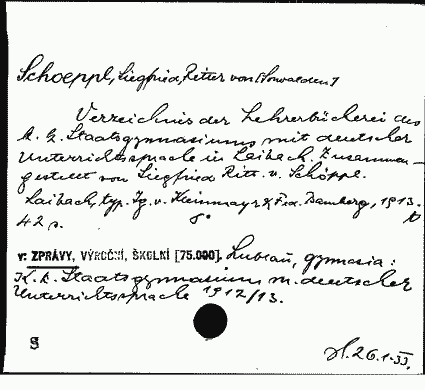 Schoeppl, Siegfried, Ritter von [Sonwalden]
Verzeichnis der Lehrerbücherei des
k. k. Staatsgymnasiums mit deutscher
Unterrichtssprache in Laibach. Zusammen-
gestellt von Siegfried Ritt. v. Schöppl.
Laibach, typ. Ig. v. Kleinmayr & Fed. Bamberg, 1913.
42 s. 8°
v: ZPRÁVY, VÝROČNÍ, ŠKOLNÍ [75.000]. Lublaň, gymnasia:
K. k. Staatsgymnasium m. deutscher
Unterrichtssprache 1912/13.
S
26.1.33.